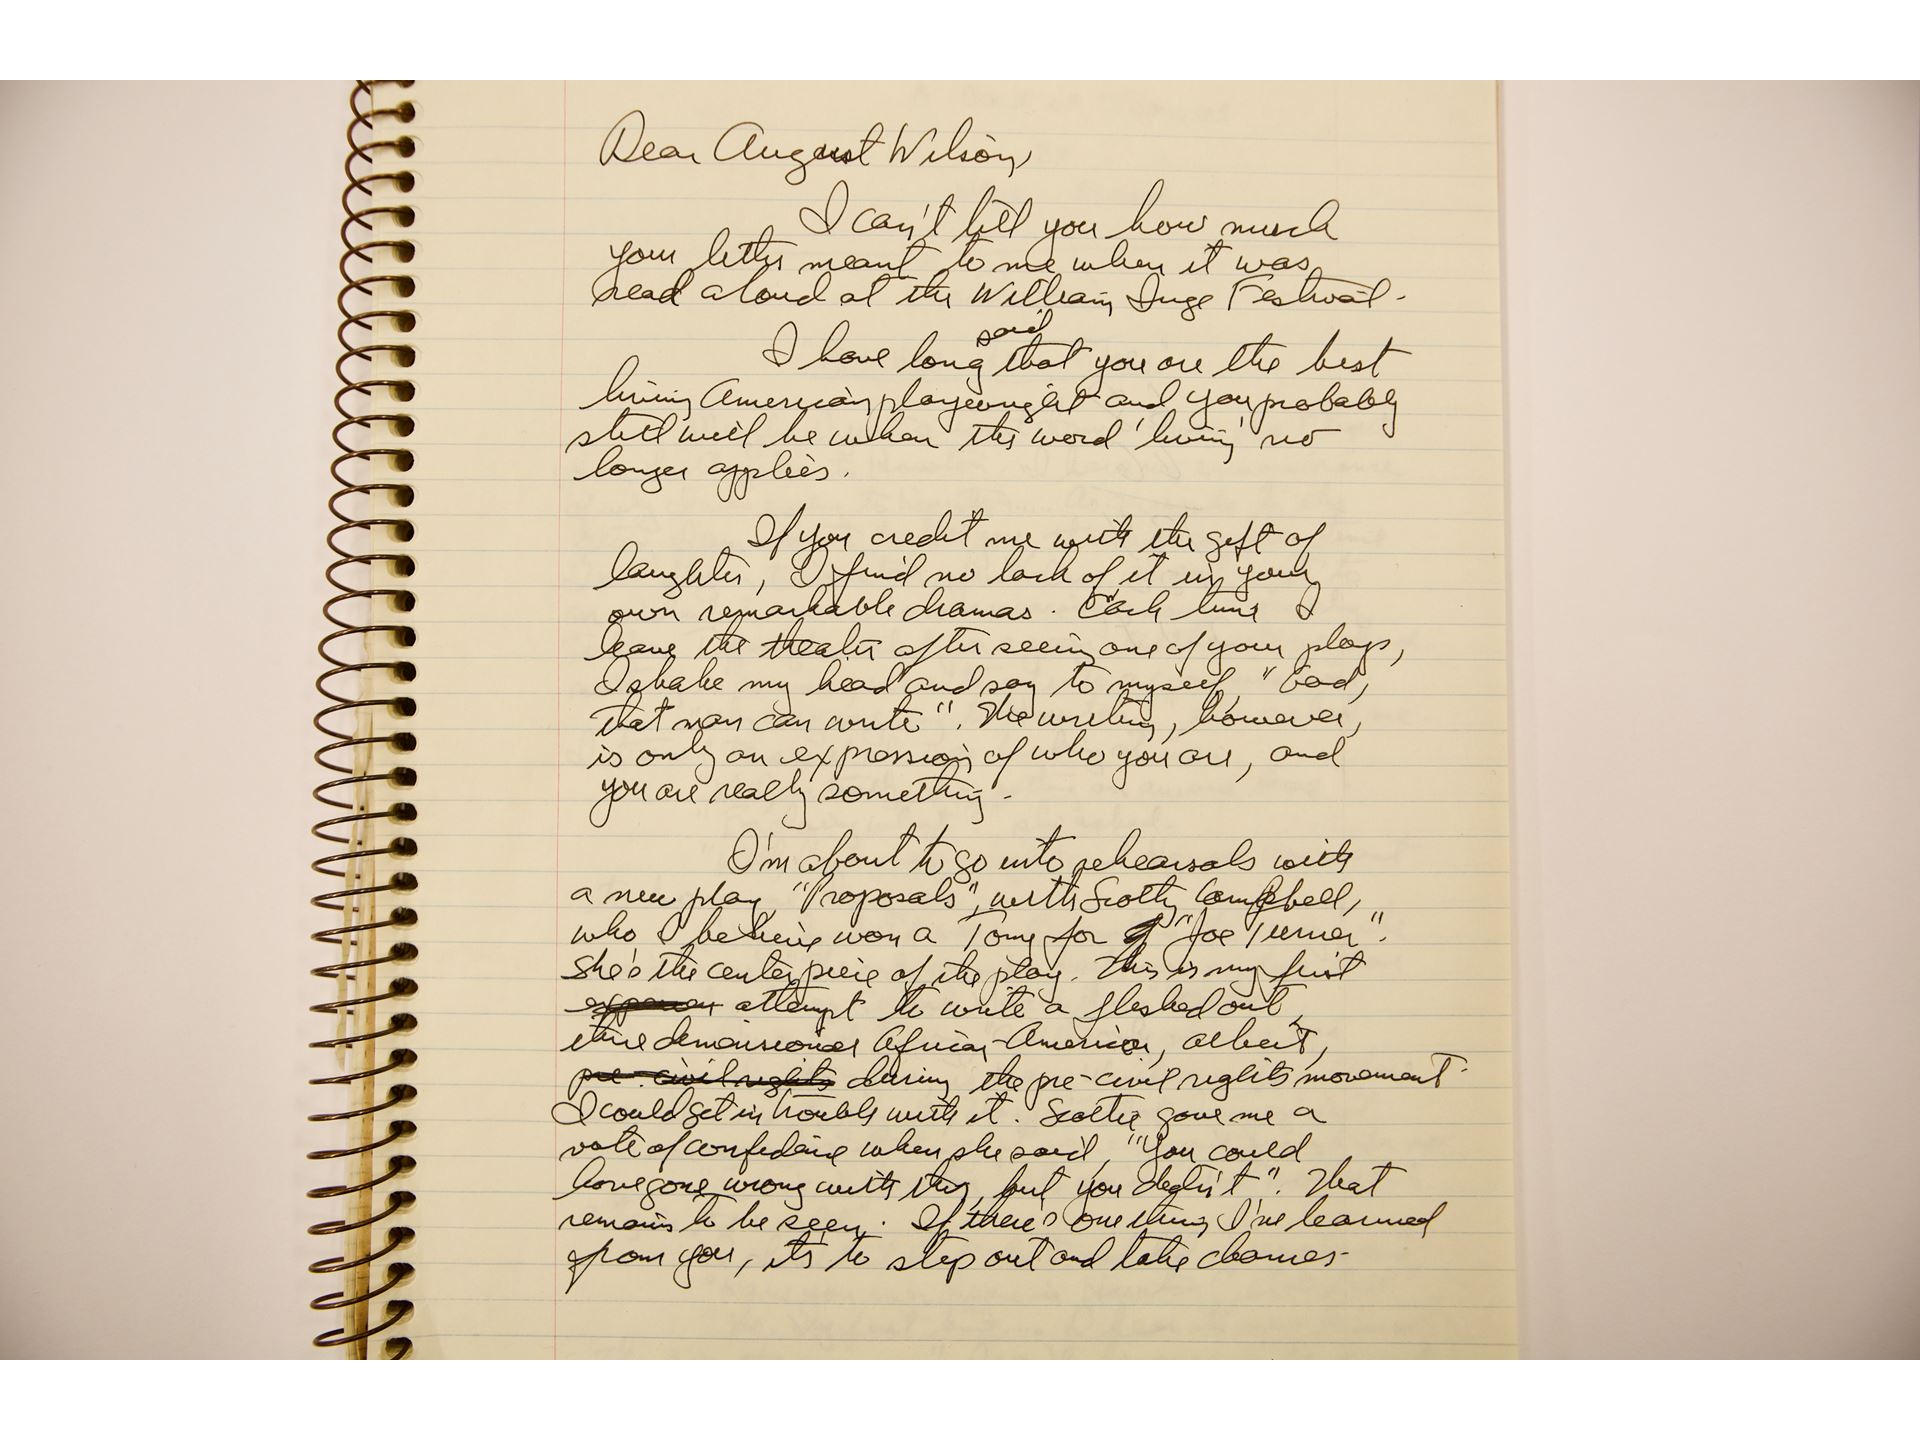 Dear August Wilson,
I can't tell you how much
your letter meant to me when it was
read aloud at the William Inge Festival.
said
I have long that you are the best
living American playwright and you probably
still will be when the word 'living' no
longer applies.
If you credit me with the gift of
laughter, I find no lack of it in your
own remarkable dramas. Each time I
leave the theater after seeing one of your plays,
I shake my head and say to myself, "God,
that man can write". The writing, however,
is only an expression of who you are, and
you are really something.
I'm about to go into rehearsals with
a new play, "Proposals", with Scotty Campbell,
who I believe won a Tony for "Joe Turner".
She's the center piece of the play. This is my first
attempt to write a fleshed out,
African-American, albeit,
pre-civil rights during the pre-civil rights movement.
I could get in trouble with it. Scottie gave me a
vote of confidence when she said, "You could
have gone wrong with this, but you didn't". That
remains to be seen. If there's one thing I've learned
from you, it's to step out and take chances.